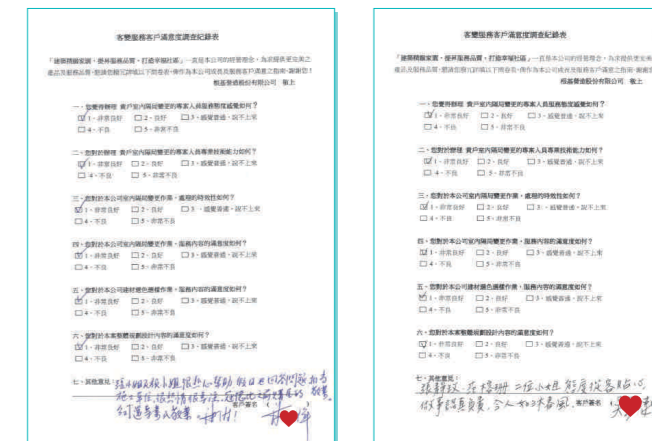 客變服務客戶滿意度調查紀錄表
「建築精緻家園，提昇服務品質，打造幸福社區」一直是本公司的經營理念，為求提供更完美之
產品及服務品質，懇請您撥冗詳填以下問卷表，俾作為本公司成長及服務客戶滿意之指南，謝謝您！
根基營造股份有限公司 敬上
一、您覺得辦理 貴戶室內隔局變更的專案人員服務態度感覺如何？
1、非常良好 2、良好 3、感覺普通，說不上來
4、不良 5、非常不良
二、您對於辦理 貴戶室內隔局變更的專案人員專業技術能力如何？
1、非常良好 2、良好 3、感覺普通，說不上來
4、不良 5、非常不良
三、您對於本公司室內隔局變更作業，處理的時效性如何？
1、非常良好 2、良好 3、感覺普通，說不上來
4、不良 5、非常不良
四、您對於本公司室內隔局變更作業，服務內容的滿意度如何？
1、非常良好 2、良好 3、感覺普通，說不上來
4、不良 5、非常不良
五、您對於本公司建材選色選樣作業，服務內容的滿意度如何？
1、非常良好 2、良好 3、感覺普通，說不上來
4、不良 5、非常不良
六、您對於本案整體規劃設計內容的滿意度如何？
1、非常良好 2、良好 3、感覺普通，說不上來
4、不良 5、非常不良
七、其他意見：
客戶簽名
客變服務客戶滿意度調查紀錄表
「建築精緻家園，提昇服務品質，打造幸福社區」一直是本公司的經營理念，為求提供更完美
產品及服務品質，懇請您撥冗詳填以下問卷表，俾作為本公司成長及服務客戶滿意之指南，謝謝您
根基營造股份有限公司 敬上
一、您覺得辦理 貴戶室內隔局變更的專案人員服務態度感覺如何？
1、非常良好 2、良好 3、感覺普通，說不上來
4、不良 5、非常不良
二、您對於辦理 貴戶室內隔局變更的專案人員專業技術能力如何？
1、非常良好 2、良好 3、感覺普通，說不上來
4、不良 5、非常不良
三、您對於本公司室內隔局變更作業，處理的時效性如何？
1、非常良好 2、良好 3、感覺普通，說不上來
4、不良 5、非常不良
四、您對於本公司室內隔局變更作業，服務內容的滿意度如何？
1、非常良好 2、良好 3、感覺普通，說不上來
4、不良 5、非常不良
五、您對於本公司建材選色選樣作業，服務內容的滿意度如何？
1、非常良好 2、良好 3、感覺普通，說不上來
4、不良 5、非常不良
六、您對於本案整體規劃設計內容的滿意度如何？
1、非常良好 2、良好 3、感覺普通，說不上來
4、不良 5、非常不良
七、其他意見：
二位小姐 態度從容貼心,
做事認真負責, 令人如沐春風. 客戶簽名